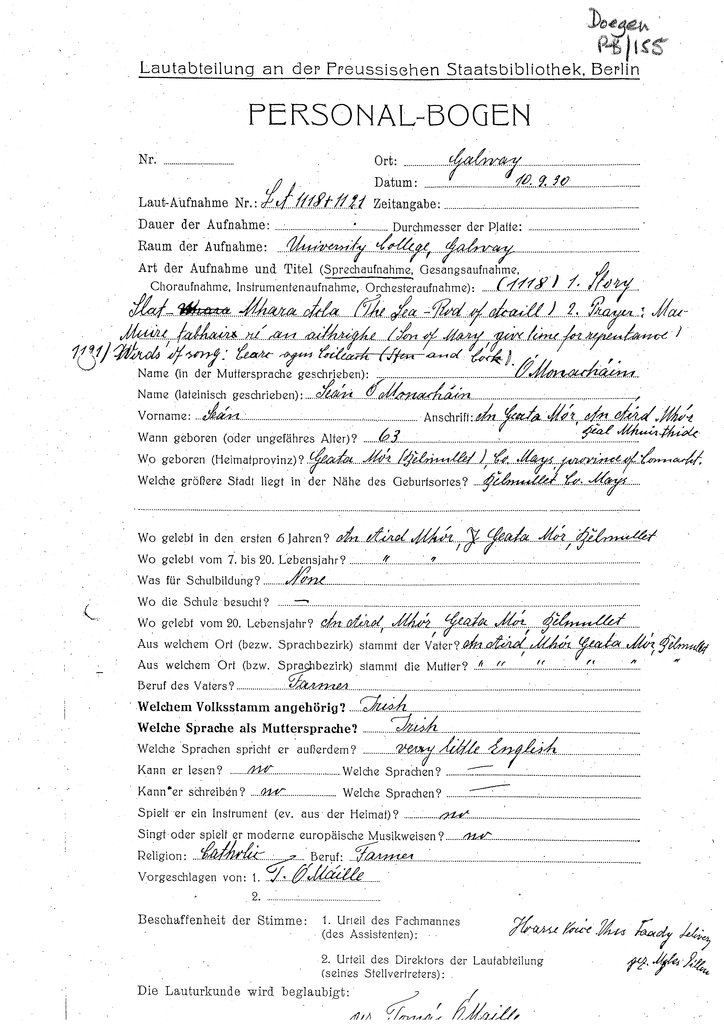 Doegen
PB/155
Lautabteilung an der Preussischen Staatsbibliothek, Berlin
PERSONAL-BOGEN
Nr.
Ort: Galway
Datum: 10.9.30
Laut-Aufnahme Nr.: LA 1118+1121 Zeitangabe:
Dauer der Aufnahme: Durchmesser der Platte:
Raum der Aufnahme: University College, Galway
Art der Aufnahme und Titel (Sprechaufnahme, Gesangsaufnahme,
Choraufnahme, Instrumentenaufnahme, Orchesteraufnahme): (1118) 1. Story
Slat Mhara (The Sea-Rod of) 2. Prayer: Mac
Muire tabhair ré an aithrighe (Son of Mary, give time for repentance)
1121/ Words of song: Cearc agus Coileach (Hen and Cock).
Name (in der Muttersprache geschrieben): Ó Monacháin
Name (lateinisch geschrieben): Seán Ó Monacháin
Vorname: Seán Anschrift: An Geata Mór, An Aird Mhór
Béal Mhuirthide
Wann geboren (oder ungefähres Alter)? 63
Wo geboren (Heimatprovinz)? Geata Mór (Belmullet), Co. Mayo, province of Connacht.
Welche größere Stadt liegt in der Nähe des Geburtsortes? Belmullet Co. Mayo
Wo gelebt in den ersten 6 Jahren? An Aird Mhór, Geata Mór, Belmullet
Wo gelebt vom 7. bis 20. Lebensjahr? " "
Was für Schulbildung? None
Wo die Schule besucht? —
Wo gelebt vom 20. Lebensjahr? An Aird, Mhór Geata Mór Belmullet
Aus welchem Ort (bzw. Sprachbezirk) stammt der Vater? An Aird, Mhór Geata Mór, Belmullet
Aus welchem Ort (bzw. Sprachbezirk) stammt die Mutter? " " " " " "
Beruf des Vaters? Farmer
Welchem Volksstamm angehörig? Irish
Welche Sprache als Muttersprache? Irish
Welche Sprachen spricht er außerdem? very little English
Kann er lesen? no Welche Sprachen? —
Kann er schreiben? no Welche Sprachen? —
Spielt er ein Instrument (ev. aus der Heimat)? no
Singt oder spielt er moderne europäische Musikweisen? no
Religion: Catholic Beruf: Farmer
Vorgeschlagen von: 1. T. Ó Máille
2.
Beschaffenheit der Stimme: 1. Urteil des Fachmannes
(des Assistenten): Hoarse Voice Delivery
2. Urteil des Direktors der Lautabteilung
(seines Stellvertreters): gez. Myles Dillon
Die Lauturkunde wird beglaubigt:
gez. Tomás Ó Maille